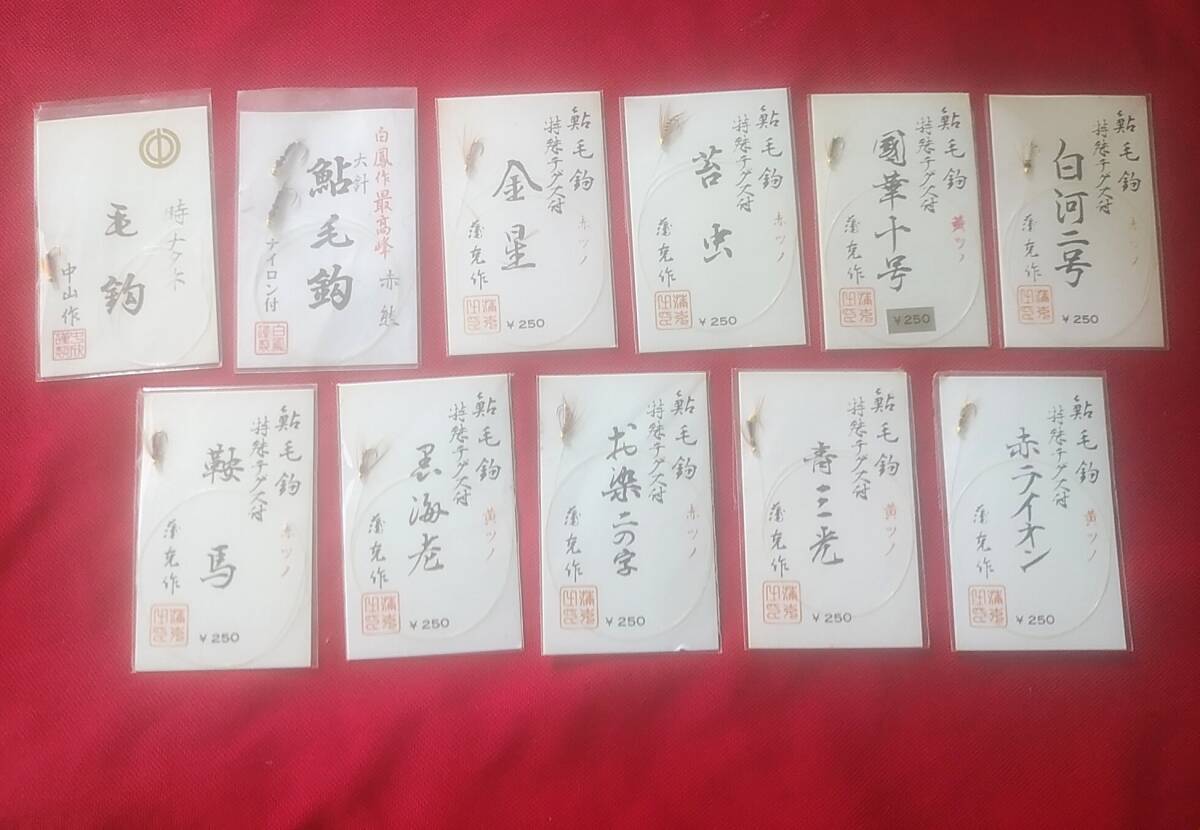 時ナクネ
毛鈎
中山作
白鳳作最高峰
赤熊
大針
鮎毛鈎
ナイロン付
鮎毛鈎
特殊テグス付
赤ツノ
金星
蒲克作
¥250
鮎毛鈎
特殊テグス付
赤ツノ
苔虫
蒲克作
¥250
鮎毛鈎
特殊テグス付
黄ツノ
國華十号
蒲克作
¥250
鮎毛鈎
特殊テグス付
赤ツノ
白河二号
蒲克作
¥250
鮎毛鈎
特殊テグス付
赤ツノ
鞍馬
蒲克作
¥250
鮎毛鈎
特殊テグス付
黄ツノ
黒海老
蒲克作
¥250
鮎毛鈎
特殊テグス付
赤ツノ
お染二の字
蒲克作
¥250
鮎毛鈎
特殊テグス付
黄ツノ
青三光
蒲克作
¥250
鮎毛鈎
特殊テグス付
黄ツノ
赤ライオン
蒲克作
¥250